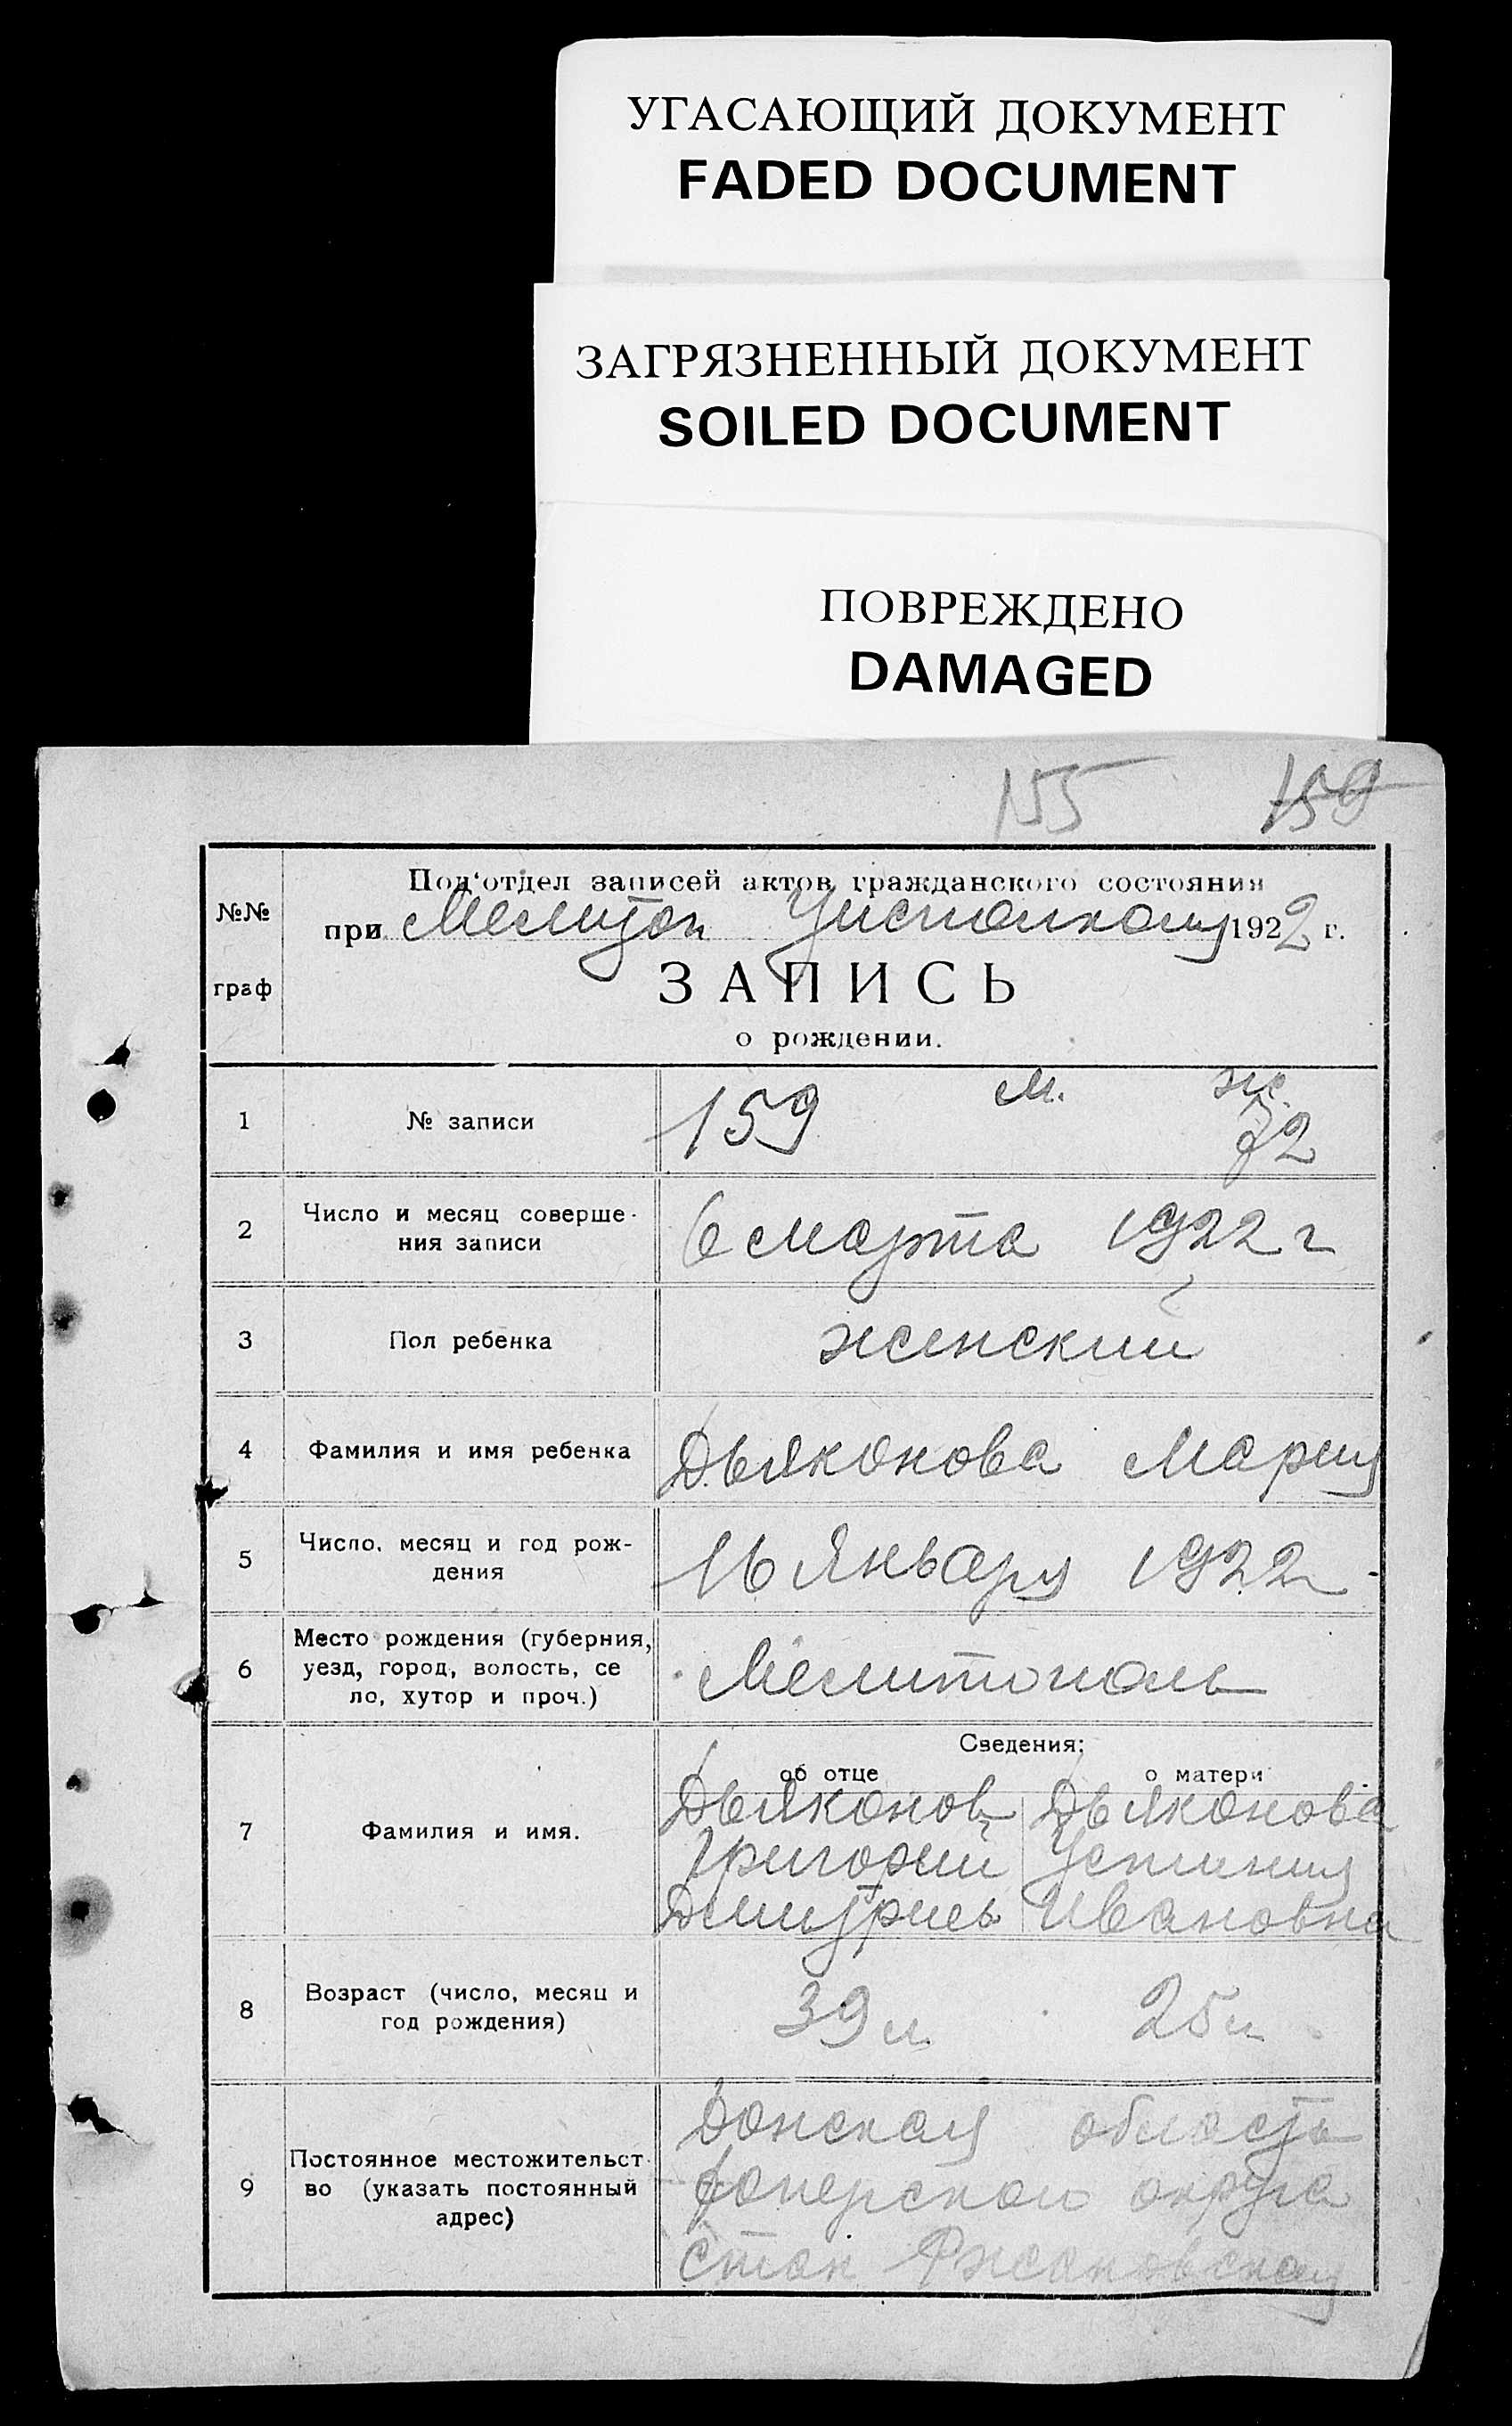 УГАСАЮЩИЙ ДОКУМЕНТ
FADED DOCUMENT
ЗАГРЯЗНЕННЫЙ ДОКУМЕНТ
SOILED DOCUMENT
ПОВРЕЖДЕНО
DAMAGED
155 159
№№ граф
Под'отдел записей актов гражданского состояния
при Мелитоп Уисполкому 1922 г.
ЗАПИСЬ
о рождении.
1 № записи 159 м. ж. 72
2 Число и месяц соверше-
ния записи 6 марта 1922 г
3 Пол ребенка женский
4 Фамилия и имя ребенка Дьяконова Мария
5 Число, месяц и год рож-
дения 16 Января 1922
6 Место рождения (губерния,
уезд, город, волость, се
ло, хутор и проч.) Мелитополь
Сведения:
об отце о матери
7 Фамилия и имя. Дьяконов Дьяконова
Григорий Устиния
Дмитриев Ивановна
8 Возраст (число, месяц и
год рождения) 39 л. 25 л
9 Постоянное местожительст
во (указать постоянный
адрес) Донская область
Хоперского округа
стан Ржановская